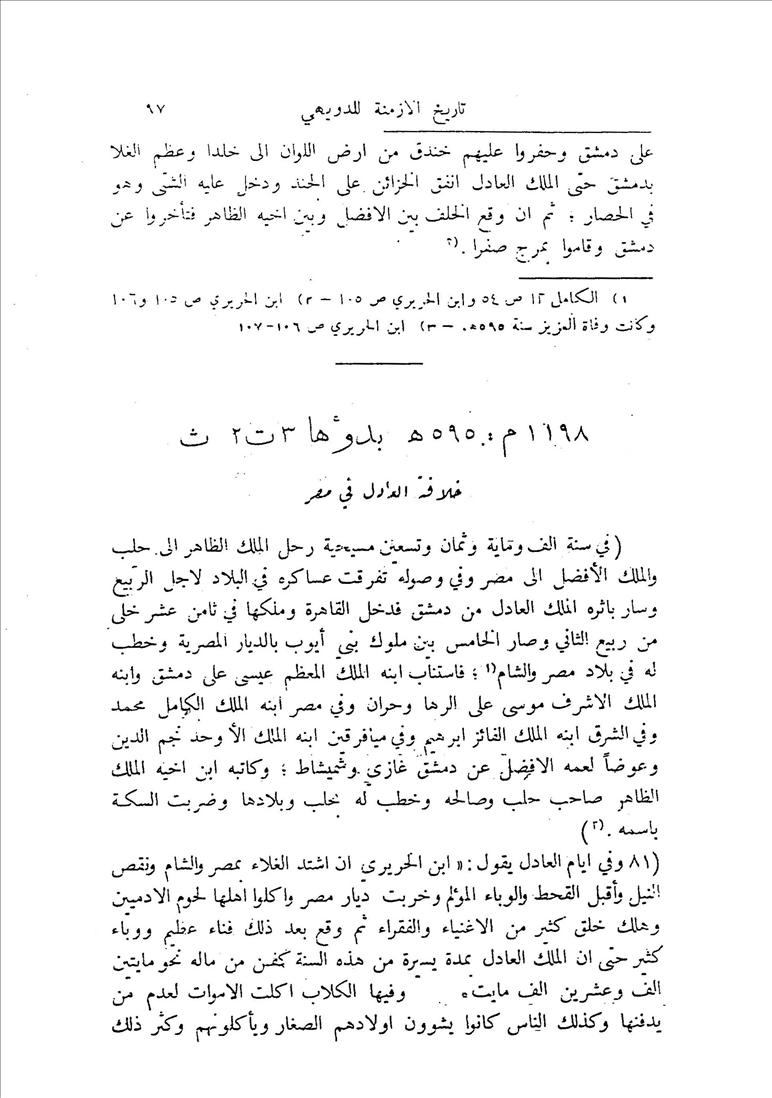 تاريخ الازمنة للدويهي ٩٧
على دمشق وحفروا عليهم خندق من ارض اللوان الى خلدا وعظم الغلا
بدمشق حتّى الملك العادل انفق الخزائن على الجند ودخل عليه الشتى وهو
في الحصار ؛ ثم ان وقع الخلف بين الافضل وبين اخيه الظاهر فتأخروا عن
دمشق وقاموا بمرج صفرا .(٢
١) الكامل ١٢ ص ٥٤ وابن الحريري ص ١٠٥ – ٢) ابن الحريري ص ١٠٥ و١٠٦
وكانت وفاة العزيز سنة ٥٩٥ه. – ٣) ابن الحريري ص ١٠٦-١٠٧
١١٩٨ م : ٥٩٥ ه بدؤها ٣ ت٢ ث
خلافة العادل في مصر
(في سنة الف وماية وثمان وتسعين مسيحية رحل الملك الظاهر الى حلب
والملك الأفضل الى مصر وفي وصوله تفرقت عساكره في البلاد لاجل الربيع
وسار باثره الملك العادل من دمشق فدخل القاهرة وملكها في ثامن عشر خلى
من ربيع الثاني وصار الخامس بين ملوك بني أيوب بالديار المصرية وخطب
له في بلاد مصر والشام(١ ؛ فاستناب ابنه الملك المعظم عيسى على دمشق وابنه
الملك الاشرف موسى على الرها وحران وفي مصر ابنه الملك الكامل محمد
وفي الشرق ابنه الملك الفائز ابرهيم وفي ميافرقين ابنه الملك الأوحد نجم الدين
وعوضاً لعمه الافضل عن دمشق غازي وشميشاط ؛ وكاتبه ابن اخيه الملك
الظاهر صاحب حلب وصالحه وخطب له بحلب وبلادها وضربت السكة
باسمه .(٢)
(٨١ وفي ايام العادل يقول : « ابن الحريري ان اشتد الغلاء بمصر والشام ونقص
النيل وأقبل القحط والوباء المؤلم وخربت ديار مصر واكلوا اهلها لحوم الادميين
وهلك خلق كثير من الاغنياء والفقراء ثم وقع بعد ذلك فناء عظيم ووباء
كثير حتّى ان الملك العادل بمدة يسيرة من هذه السنة كفن من ماله نحو مايتين
الف وعشرين الف مايت. وفيها الكلاب اكلت الاموات لعدم من
يدفنها وكذلك الناس كانوا يشوون اولادهم الصغار ويأكلونهم وكثر ذلك